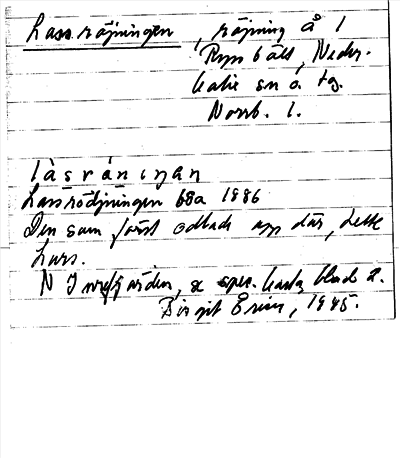 Lassröjningen, röjning å 1
Ryssbält, Neder-
kalix sn o. tg.
Norrb. l.
làsrǻniŋan
Lassrödjningen bßa 1986
Den som först odlade upp där, hette
Lars.
N Innerfjärden, se spec. karta blad 2.
Birgit Eriss, 1985.